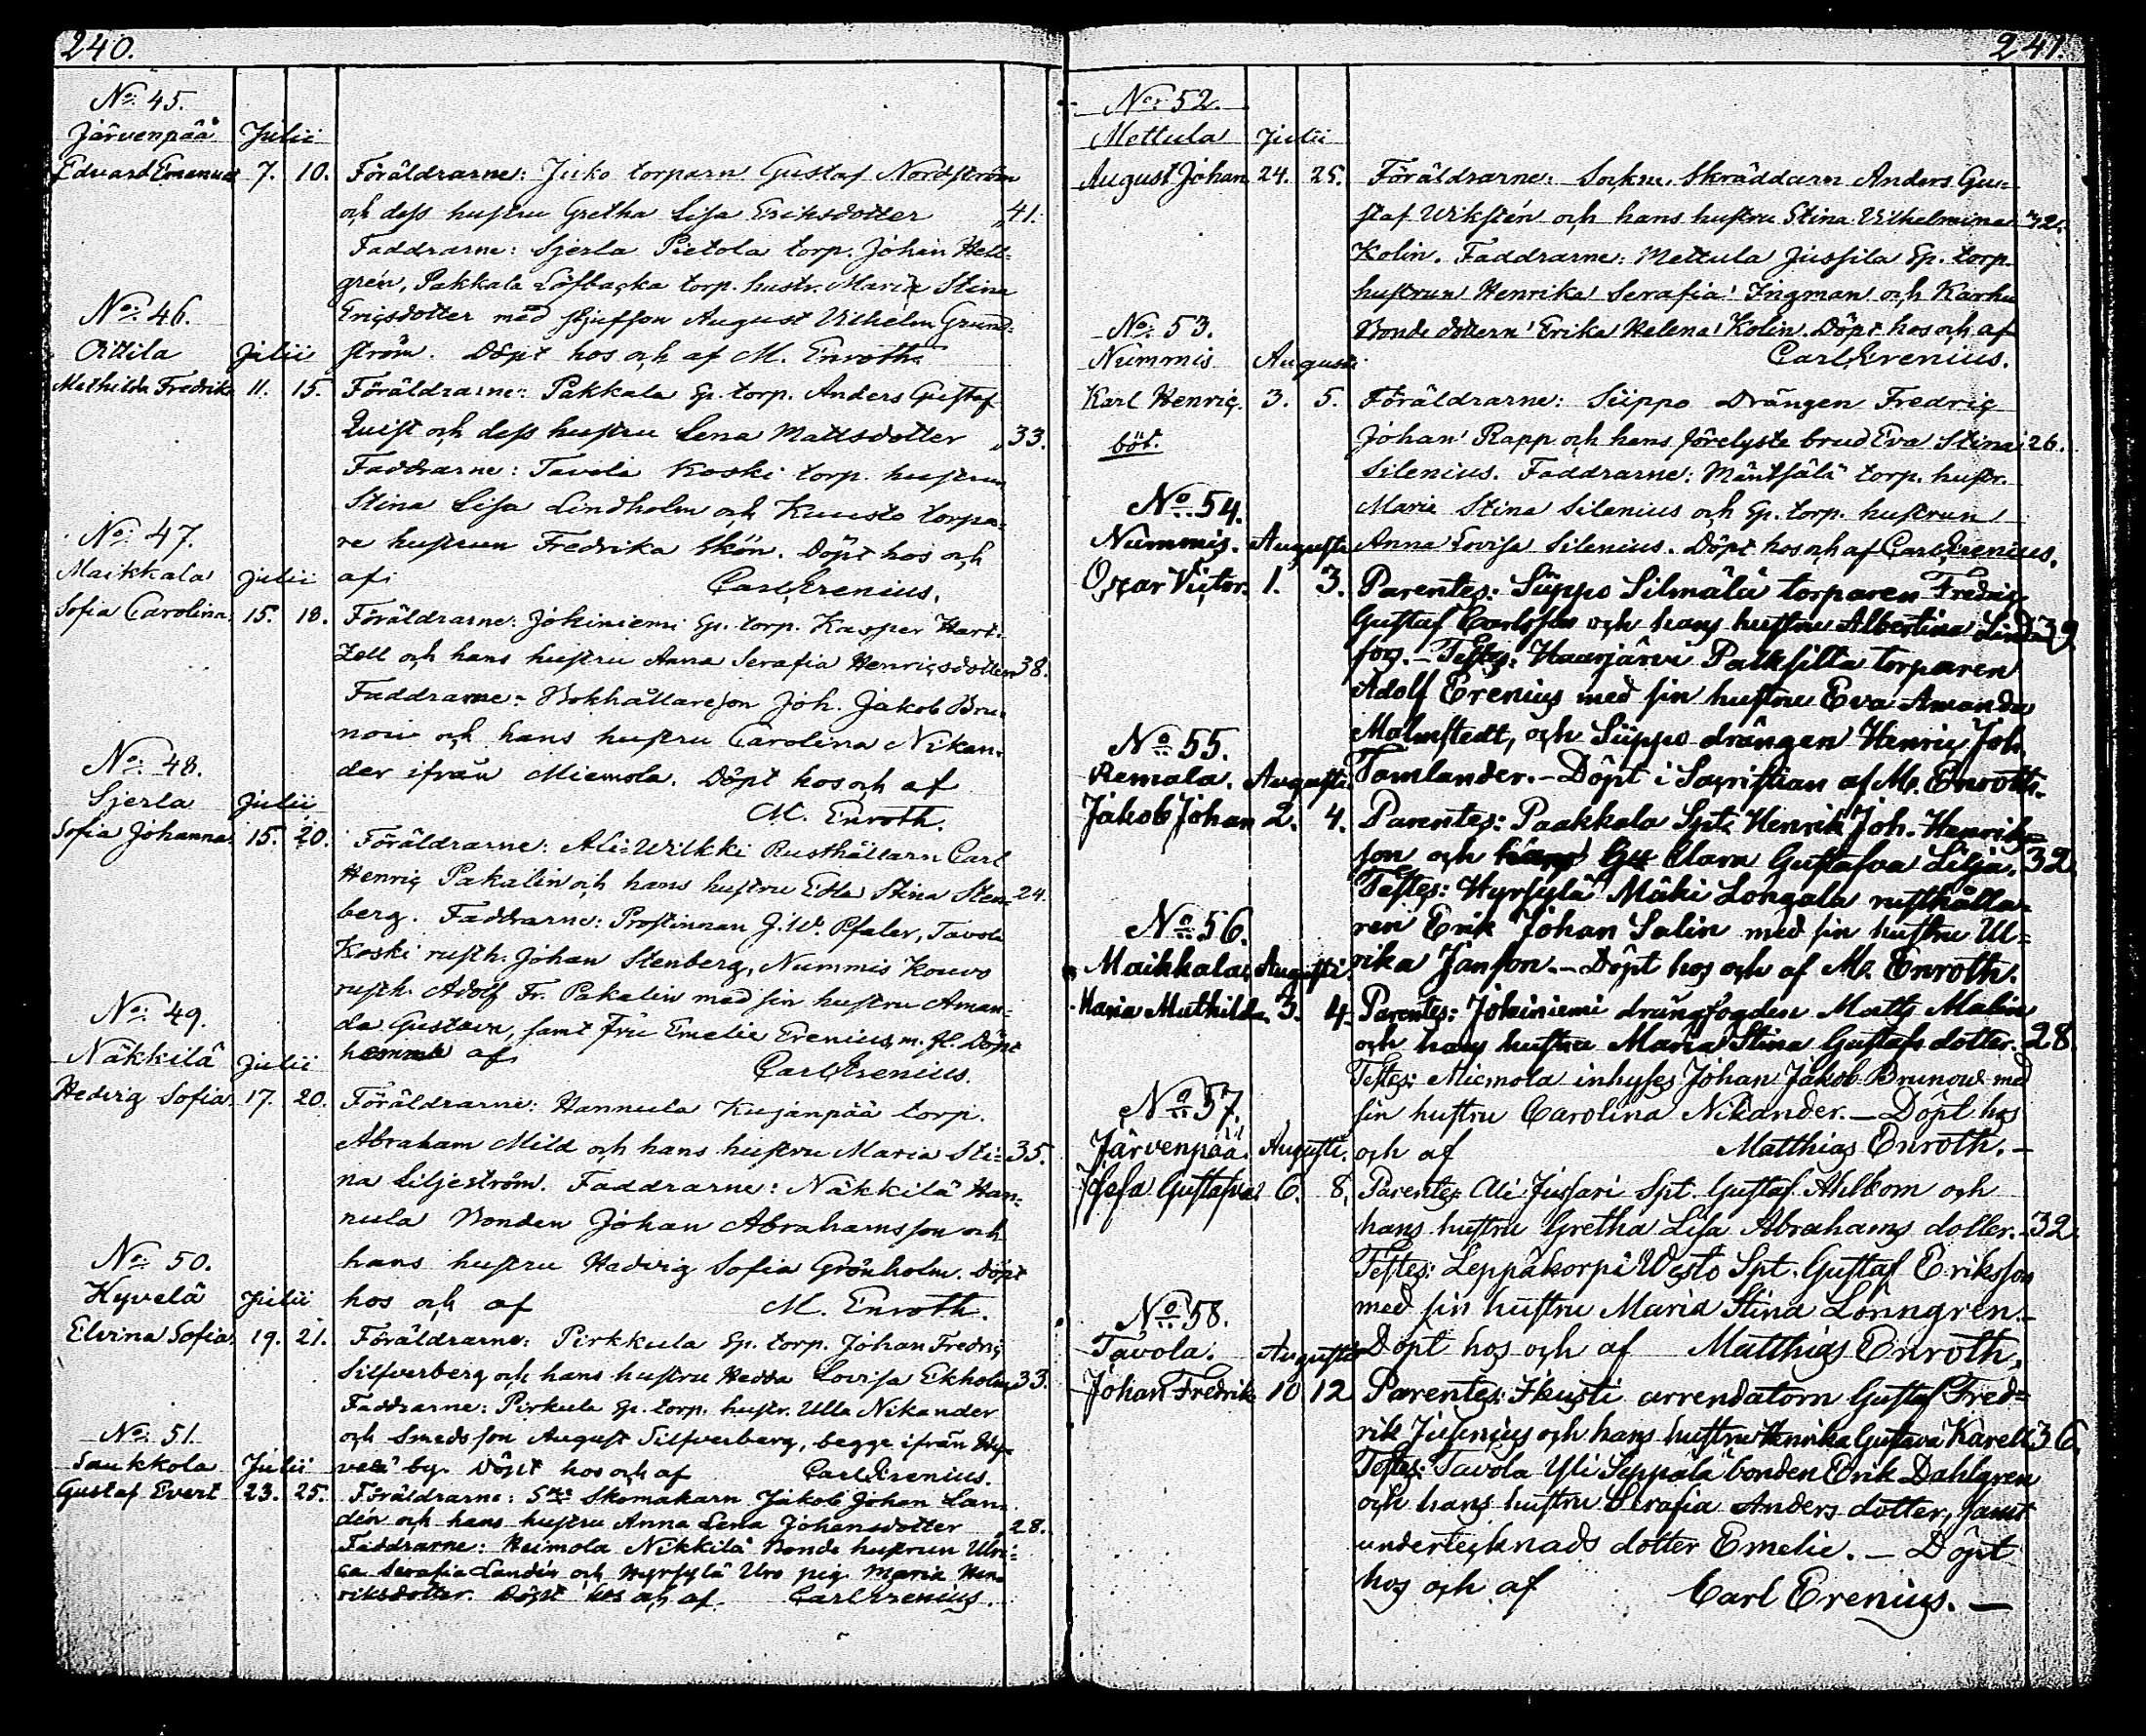 240.
No. 45.
Järvenpää Julii
Eduard Emanuel 7. 10. Föräldrarne: Juko torparn Gustaf Nordström
och dess hustru Gretha Lisa Eriksdotter 41.
Faddrarne: Sjerla Pietola torp. Johan Hell-
grén, Pakkala Löfbacka torp. hustr. Maria Stina
No. 46.
Ericsdotter med styfson August Vilhelm Grund-
Oittila Julii ström. Döpt hos och af M. Enroth.
Mathilda Fredrika 11. 15. Föräldrarne: Pakkala Sp. torp. Anders Gustaf
Quist och dess hustru Lena Mattsdotter 33.
Faddrarne: Tavola Koski torp. hustrun
Stina Lisa Lindholm och Kuusto torpa-
No. 47.
re hustrun Fredrika Skön. Döpt hos och
Maikkala Julii af Carl Erenius.
Sofia Carolina 15. 18. Föräldrarne: Johiniemi Sp. torp. Kasper Hart-
zell och hans hustru Anna Serafia Henricsdotter 38.
Faddrarne: Bokhållareson Joh. Jakob Bru-
now och hans hustru Carolina Nikan-
No. 48.
der ifrån Miemola. Döpt hos och af
Sjerla Julii M. Enroth.
Sofia Johanna 15. 20. Föräldrarne: Ali-Wilkki Rusthållarn Carl
Henric Pakalin och hans hustru Edla Stina Sten- 24.
berg. Faddrarne: Prostinnan J. W. Pfaler, Tavola
Koski rusth. Johan Stenberg, Nummis Kouvo
rusth. Adolf Fr. Pakalin med sin hustru Aman-
No. 49.
da Gustava, samt Fru Emelie Erenius m. fl. Döpt
Näkkilä Julii hemma af Carl Erenius.
Hedvig Sofia 17. 20. Föräldrarne: Hannula Kujanpää torp.
Abraham Mild och hans hustru Maria Sti- 35.
na Liljeström. Faddrarne: Näkkilä Han-
nula Bonden Johan Abrahamsson och
No. 50.
hans hustru Hedvig Sofia Grönholm. Döpt
Hyvelä Julii hos och af M. Enroth.
Elvina Sofia 19. 21. Föräldrarne: Pirkkula Sp. torp. Johan Fredric
Silfverberg och hans hustru Hedda Lovisa Ekholm 33.
Faddrarne: Pirkula Sp. torp. hustr. Ulla Nikander
No. 51.
och Smedsson August Silfverberg, begge ifrån Hy-
Saukkola Julii velä by. Döpt hos och af Carl Erenius.
Gustaf Evert 23. 25. Föräldrarne: Skomakarn Jakob Johan Lan-
dén och hans hustru Anna Lena Johansdotter 28.
Faddrarne: Heimola Nikkilä Bonde hustrun Ulri-
ca Serafia Landén och Hyrsylä Uro pig. Maria Hen-
riksdotter. Döpt hos och af Carl Erenius.
241.
No. 52.
Mettula Julii
August Johan 24. 25. Föräldrarne: Sockne Skräddarn Anders Gu-
staf Vikstén och hans hustru Stina Vilhelmina 42.
Kolin. Faddrarne: Mettula Jussila Sp. torp.
hustrun Henrika Serafia Ingman och Karhu
No. 53.
Bonde dottern Erika Helena Kolin. Döpt hos och af
Nummis Augusti Carl Erenius.
Karl Henric. 3. 5. Föräldrarne: Siippo Drängen Fredric
böt.
Johan Rapp och hans förelyste brud Eva Stina 26.
Silenius. Faddrarne: Mäntsälä torp. hustr.
No. 54.
Maria Stina Silenius och Sp. torp. hustrun
Nummis. Augusti Anna Lovisa Silenius. Döpt hos och af Carl Erenius.
Oscar Victor. 1. 3. Parentes: Siippo Silmälä torparen Fredric
Gustaf Carlsson och hans hustru Albertina Lind- 39
fors. – Testes: Haarjärvi Palksilta torparen
Adolf Erenius med sin hustru Eva Amanda
No. 55.
Malmstedt, och Siippo drängen Henric Joh.
Remala. Augusti. Tamlander. – Döpt i Sacristian af M. Enroth.
Jakob Johan 2. 4. Parentes: Paakkala Spt. Henrik Joh. Henriks-
son och Clara Gustafva Lilja. 32.
Testes: Hyrsylä Mäki Longala rusthålla-
No. 56.
ren Erik Johan Salin med sin hustru Ul-
Maikkala. Augusti. rika Janson. – Döpt hos och af M. Enroth.
Maria Mathilda. 3. 4. Parentes: Johiniemi drängfogden Matts Malin
och hans hustru Maria Stina Gustafs dotter. 28.
Testes: Miemola inhyses Johan Jakob Brunow med
No. 57.
sin hustru Carolina Nikander. – Döpt hos
Järvenpää. Augusti. och af Matthias Enroth. –
Josefa Gustafva 6. 8. Parentes Ali Jussari Spt. Gustaf Ahlbom och
hans hustru Gretha Lisa Abrahams dotter. 32.
Testes: Leppäkorpi Westo Spt. Gustaf Eriksson
No. 58.
med sin hustru Maria Stina Lönngren. –
Tavola. Augusti Döpt hos och af Matthias Enroth.
Johan Fredrik 10 12 Parentes: Ikusti arrendatorn Gustaf Fred-
rik Jusenius och hans hustru Henrika Gustava Karell 36.
Testes: Tavola Yli Seppälä bonden Erik Dahlgren
och hans hustru Serafia Anders dotter, samt
undertecknads dotter Emelie. – Döpt
hos och af Carl Erenius. –